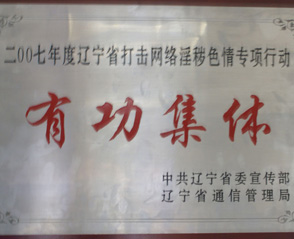 二00七年度辽宁省打击网络淫秽色情专项行动
有功集体
中共辽宁省委宣传部
辽宁省通信管理局